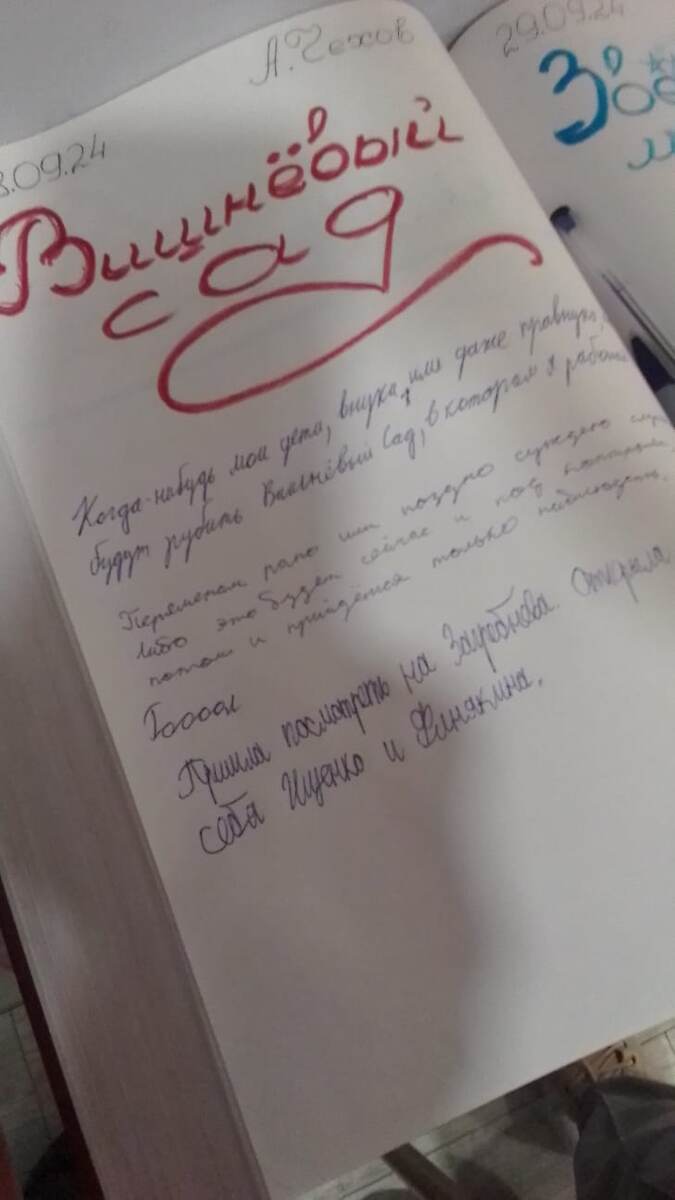 А. Чехов
8.09.24
Вишнёвый
сад
Когда-нибудь мои дети, внуки, или даже правнуки,
будут рубить Вишнёвый Сад, в котором я работ
Переменам рано или поздно суждено слу
либо это будет сейчас и под
потом и придётся только наблюдать.
Гоооол
Пришла посмотреть на Заребнова. Открыла
себя Ищенко и Финякина.
29.09.24